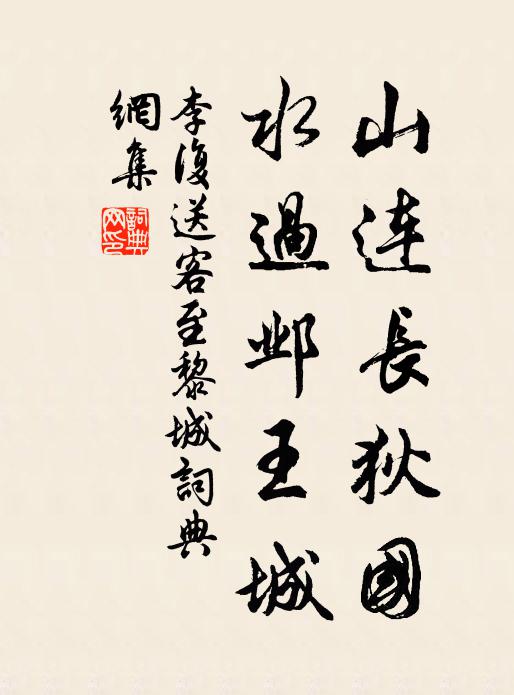 山連長狄國
水過邺王城
李復送客至黎城詞典
網集
詞典
网印